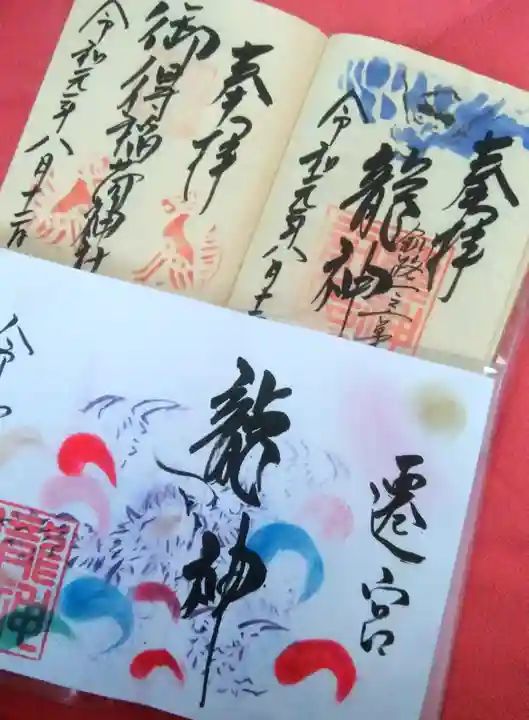 奉拝
龍神
釧路一之宮
令和元年八月十一
奉拝
御得稲荷神社
令和元年八月十二日
遷宮
龍神
龍神